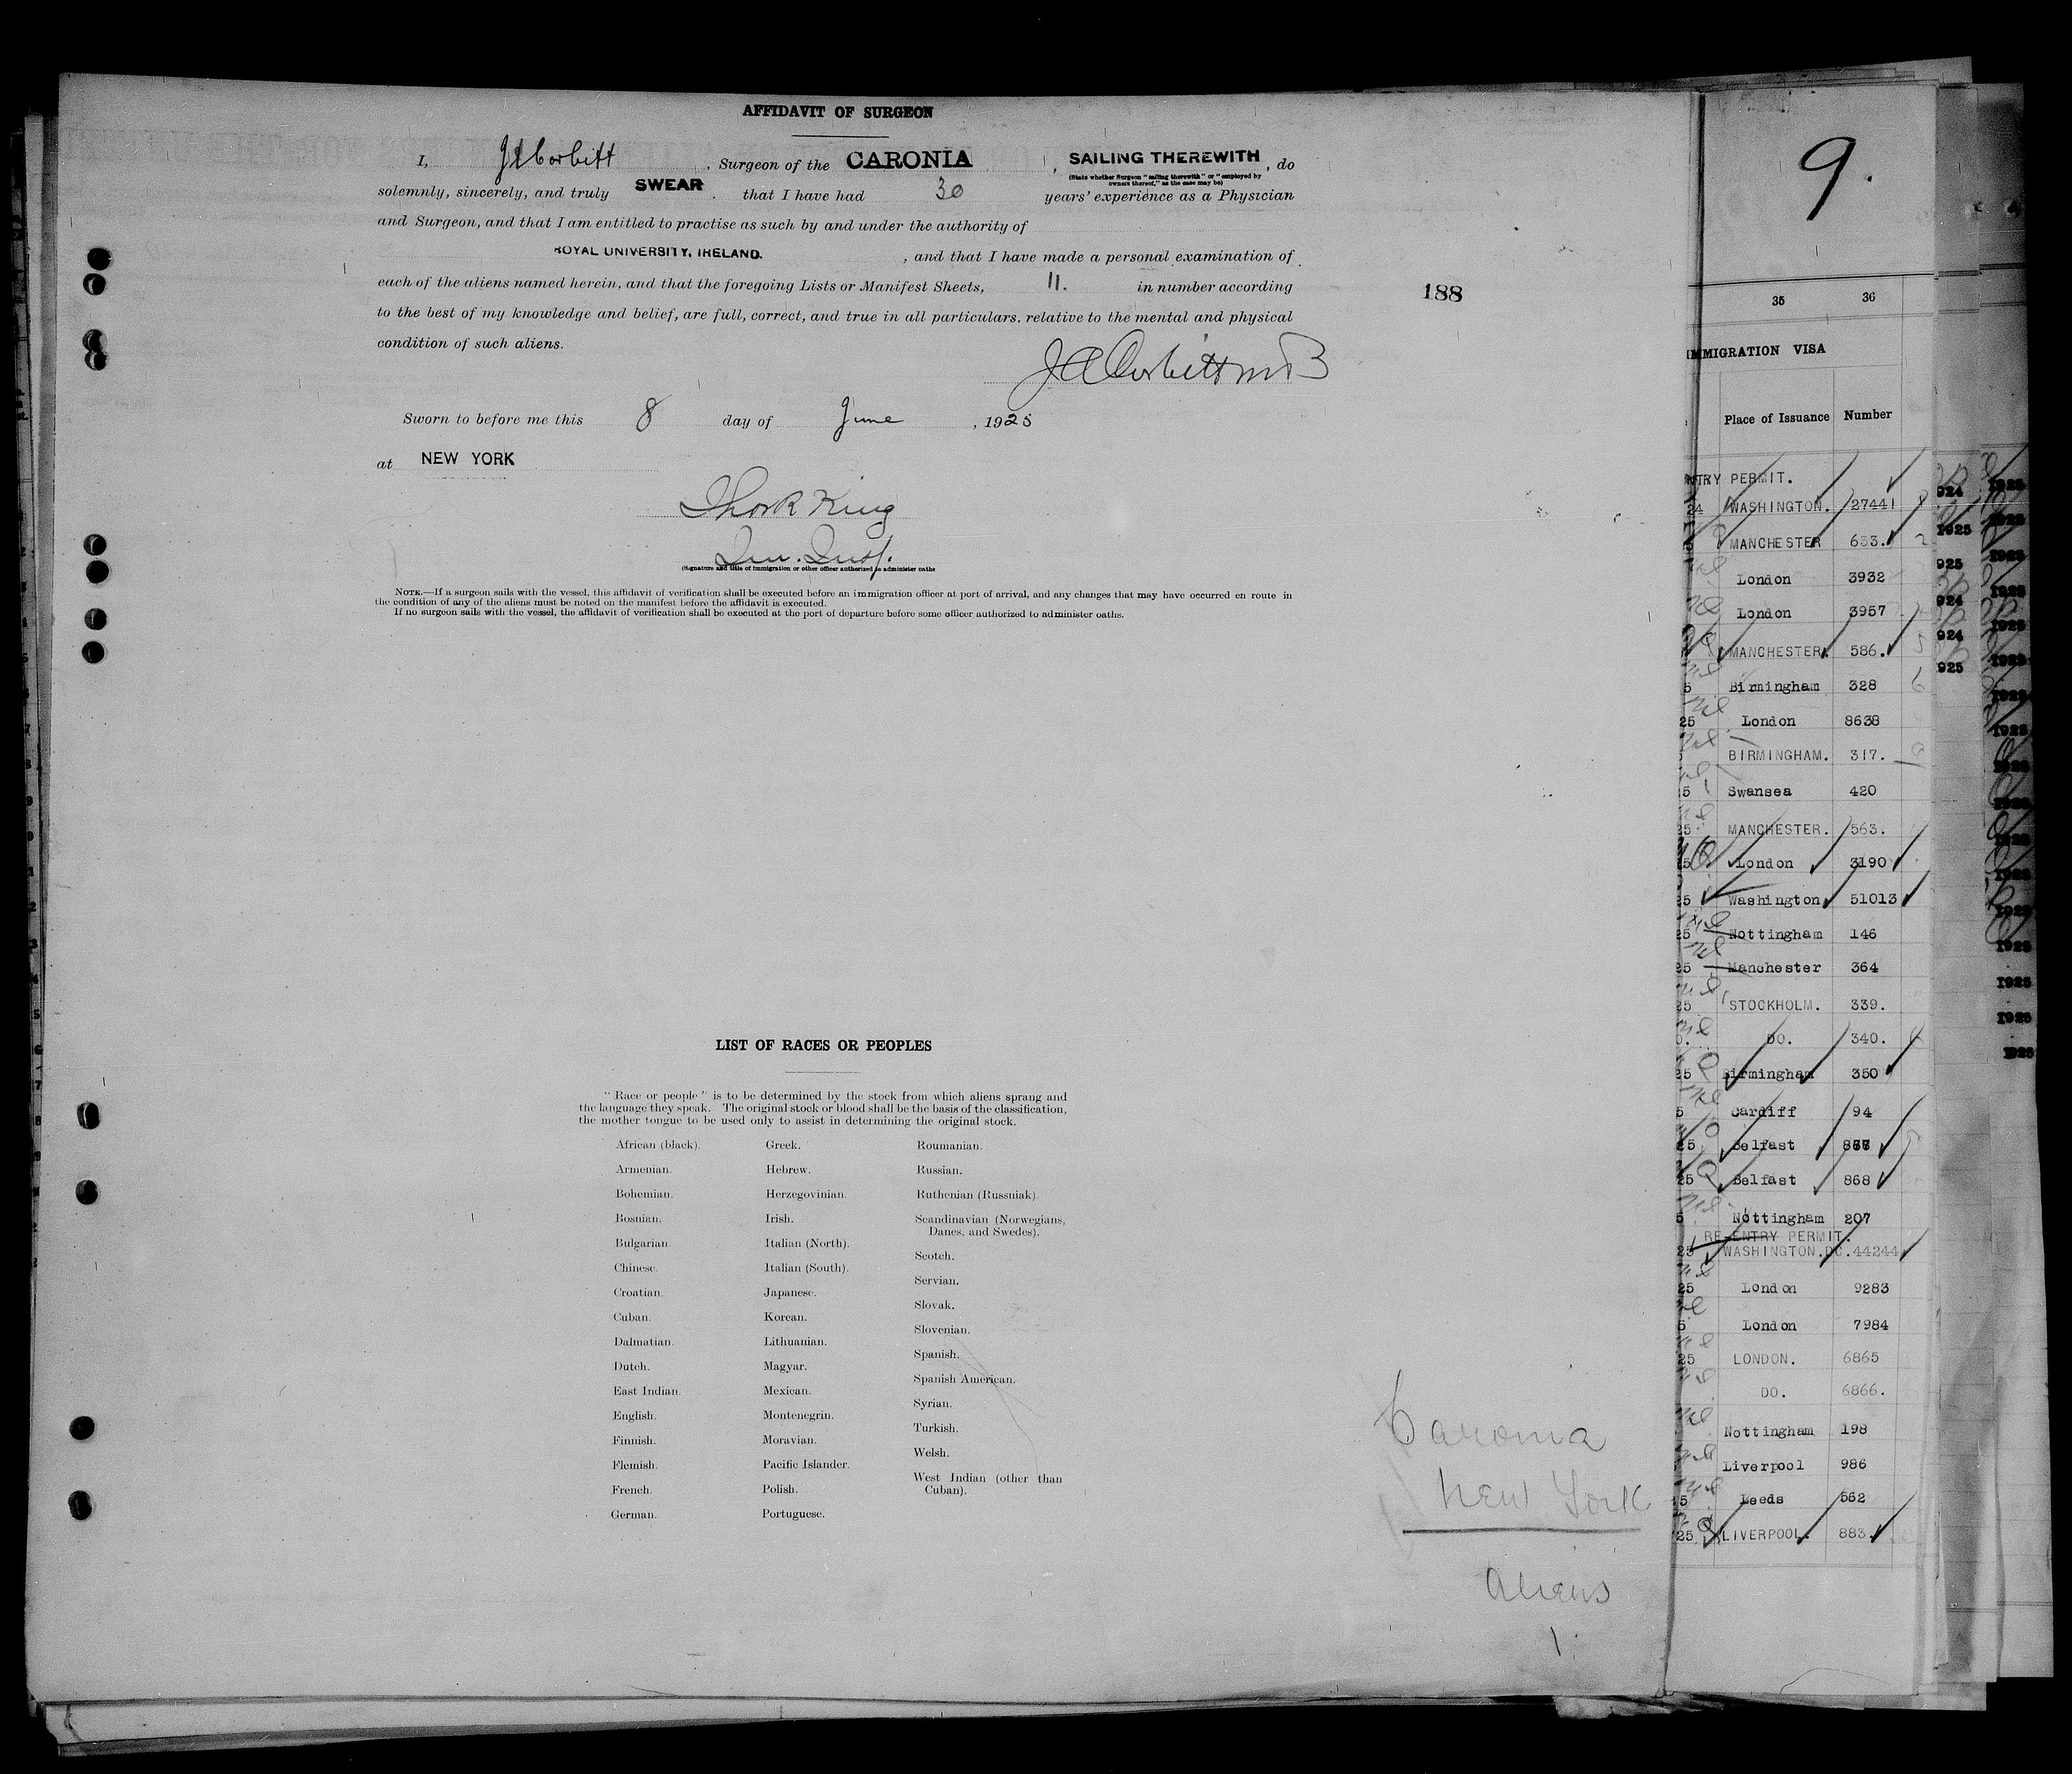 AFFIDAVIT OF SURGEON
I, J A Corbitt, Surgeon of the CARONIA, SAILING THEREWITH, do
(State whether Surgeon "sailing therewith" or "employed by
owners thereof," as the case may be)
solemnly, sincerely, and truly SWEAR. that I have had 30 years' experience as a Physician
and Surgeon, and that I am entitled to practise as such by and under the authority of
ROYAL UNIVERSITY, IRELAND. , and that I have made a personal examination of
each of the aliens named herein, and that the foregoing Lists or Manifest Sheets, 11. in number according
to the best of my knowledge and belief, are full, correct, and true in all particulars. relative to the mental and physical
condition of such aliens.
J A Corbitt MB
188
Sworn to before me this 8 day of June, 1925
at NEW YORK
Thos R King
Im. Insp.
(Signature and title of immigration or other officer authorized to administer oaths
NOTE.—If a surgeon sails with the vessel, this affidavit of verification shall be executed before an immigration officer at port of arrival, and any changes that may have occurred en route in
the condition of any of the aliens must be noted on the manifest before the affidavit is executed.
If no surgeon sails with the vessel, the affidavit of verification shall be executed at the port of departure before some officer authorized to administer oaths.
LIST OF RACES OR PEOPLES
"Race or people" is to be determined by the stock from which aliens sprang and
the language they speak. The original stock or blood shall be the basis of the classification,
the mother tongue to be used only to assist in determining the original stock.
African (black).
Armenian.
Bohemian.
Bosnian.
Bulgarian.
Chinese.
Croatian.
Cuban.
Dalmatian.
Dutch.
East Indian.
English.
Finnish.
Flemish.
French.
German.
Greek.
Hebrew.
Herzegovinian.
Irish.
Italian (North).
Italian (South).
Japanese.
Korean.
Lithuanian.
Magyar.
Mexican.
Montenegrin.
Moravian.
Pacific Islander.
Polish.
Portuguese.
Roumanian.
Russian.
Ruthenian (Russniak).
Scandinavian (Norwegians,
Danes, and Swedes).
Scotch.
Servian.
Slovak.
Slovenian.
Spanish.
Spanish American.
Syrian.
Turkish.
Welsh.
West Indian (other than
Cuban).
Caronia
New York
Aliens
1.
9.
35 36
IMMIGRATION VISA
Place of Issuance Number
NTRY PERMIT.
24 WASHINGTON. 27441
MANCHESTER 633. 2
London 3932
London 3957
MANCHESTER. 586. 5
5 Birmingham 328 6
25 London 8638
BIRMINGHAM. 317.
5 Swansea 420
25. MANCHESTER. 563.
25 London 3190
25 Washington 51013
25 Nottingham 146
25 Manchester 364
25 STOCKHOLM. 339.
DO. 340.
25 Birmingham 350
5 Cardiff 94
25 Belfast 867
25 Belfast 868
5 Nottingham 207
RE-ENTRY PERMIT.
25 WASHINGTON.DC. 44244
25 London 9283
5 London 7984
25 LONDON. 6865
DO. 6866.
Nottingham 198
Liverpool 986
5 Leeds 562
25 LIVERPOOL. 883.
924
1925
925
924
924
925
1925
1925
1925